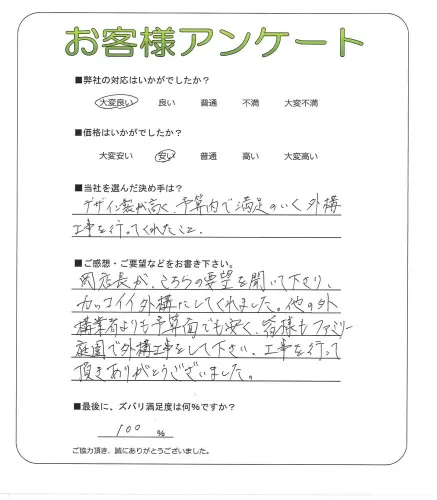 お客様アンケート
■弊社の対応はいかがでしたか？
大変良い 良い 普通 不満 大変不満
■価格はいかがでしたか？
大変安い 安い 普通 高い 大変高い
■当社を選んだ決め手は？
デザイン製が高く、予算内で満足のいく外構
工事を行ってくれたこと。
■ご感想・ご要望などをお書き下さい。
店長が、こちらの要望を聞いて下さり、
カッコイイ外構にしてくれました。他の外
構業者よりも予算面でも安く、皆様もファミリー
庭園で外構工事をして下さい、工事を行って
頂きありがとうございました。
■最後に、ズバリ満足度は何%ですか？
100 %
ご協力頂き、誠にありがとうございました。